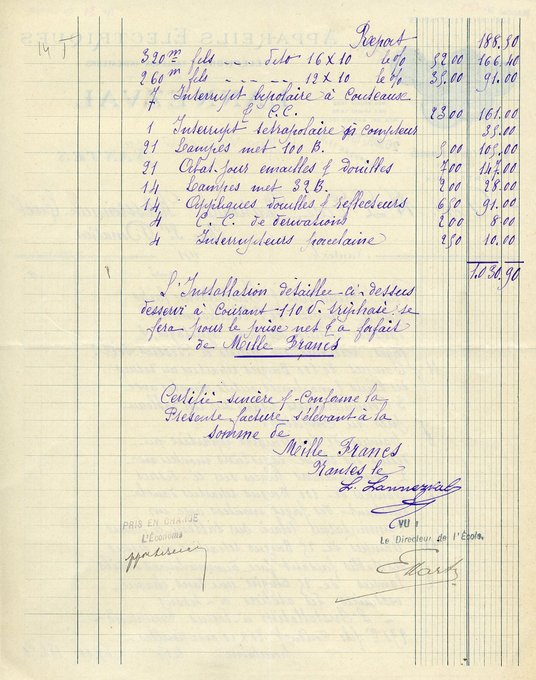 Report 188.50
320m fils - - - dito 16x10 le % 52.00 166.40
260m fils - - - - 12x10 le % 35.00 91.00
7 Interrupt bipolaire à Couteaux
& C.C. 23.00 161.00
1 Interrupt tetrapolaire compteur 35.00
21 Lampes met 100 B. 5.00 105.00
21 Abat. jour emailles & douilles 7.00 147.00
14 Lampes met 32 B. 2.00 28.00
14 Appliques douilles & reflecteurs 6.50 91.00
4 C.C. de derivations 2.00 8.00
4 Interrupteurs porcelaine 2.50 10.00
1.030.90
L'Installation détaillée ci-dessus
desservi à Courant 110 v. triphasé, se
fera pour le prise net & a forfait
de Mille Francs
Certifié sincère & Conforme la
Presente facture s'élevant à la
somme de
Mille Francs
Nantes le
L. Lannezval
PRIS EN CHARGE
L'Économe
VU :
Le Directeur de l'École,